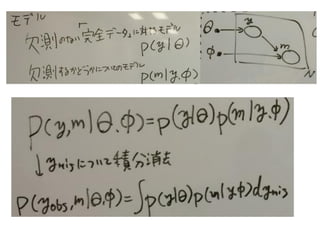 モデル
欠測のない「完全データ」に対するモデル
p(y|θ)
欠測するかどうかについてのモデル
p(m|y,φ)
θ y
φ m
N
p(y,m|θ,φ)=p(y|θ)p(m|y,φ)
↓ymisについて積分消去
p(yobs,m|θ,φ)=∫p(y|θ)p(m|y,φ)dymis